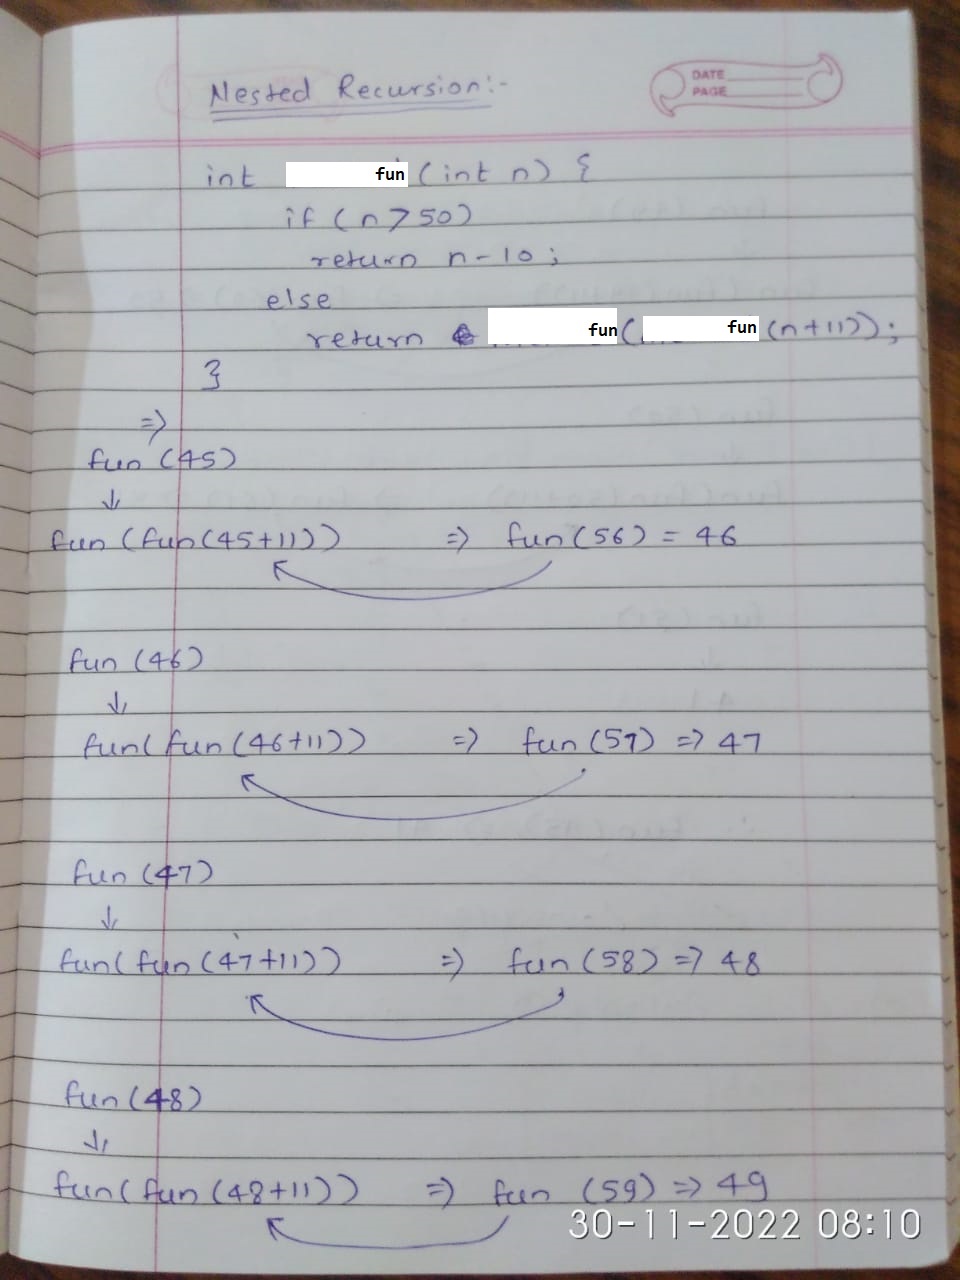 Nested Recursion:-
DATE
PAGE
int fun (int n) {
if (n > 50)
return n-10;
else
return fun( fun (n+11));
}
=>
fun (45)
↓
fun (fun(45+11)) => fun(56) = 46
fun (46)
↓
fun( fun (46+11)) => fun (57) => 47
fun (47)
↓
fun( fun (47+11)) => fun (58) => 48
fun (48)
↓
fun( fun (48+11)) => fun (59) => 49
30-11-2022 08:10